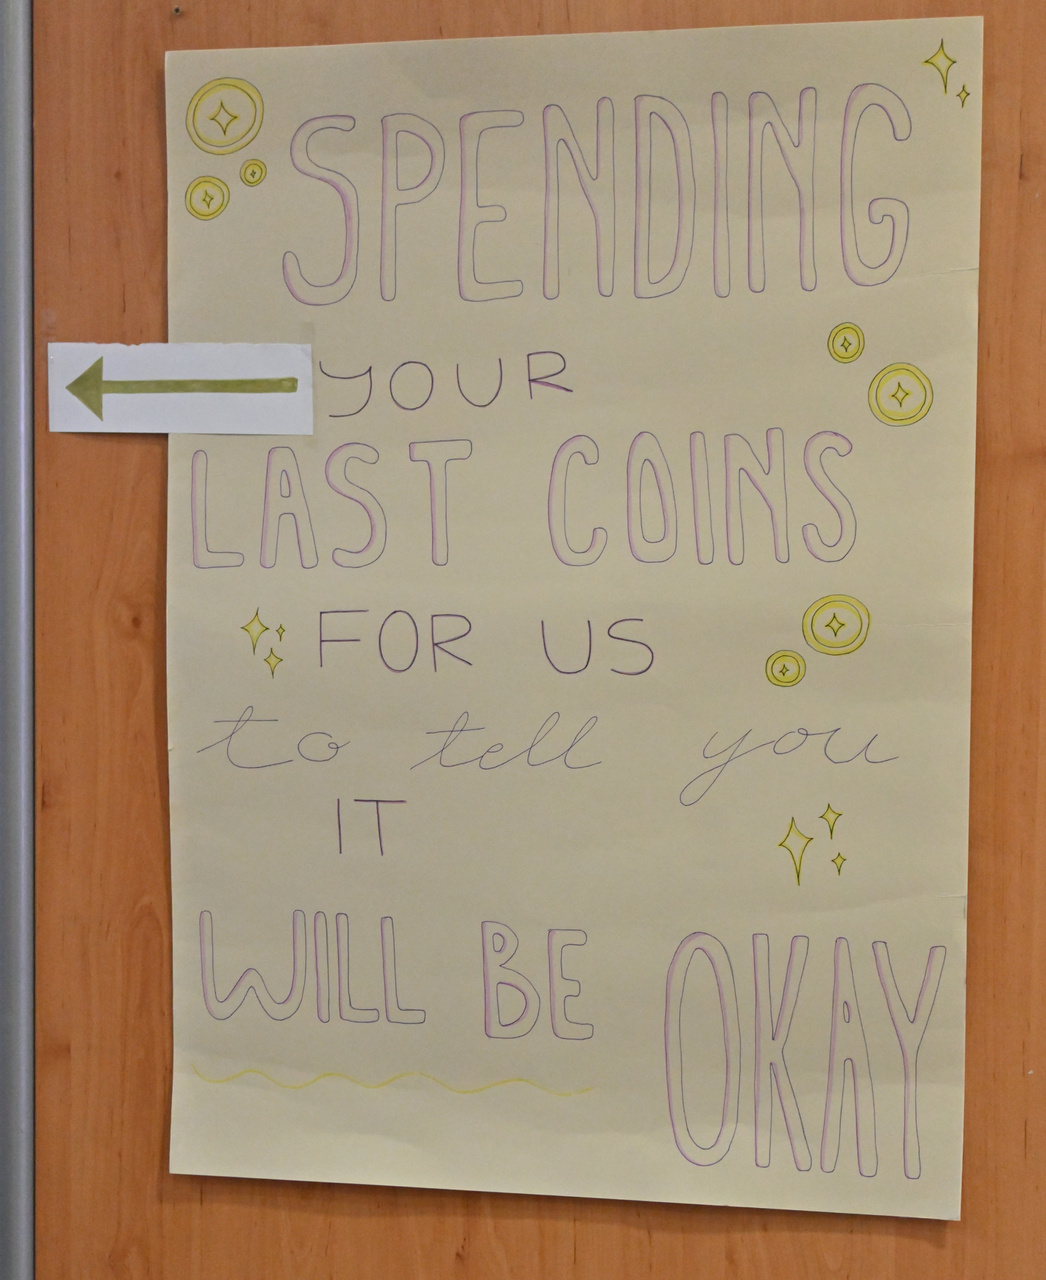 SPENDING
YOUR
LAST COINS
FOR US
to tell you
IT
WILL BE OKAY